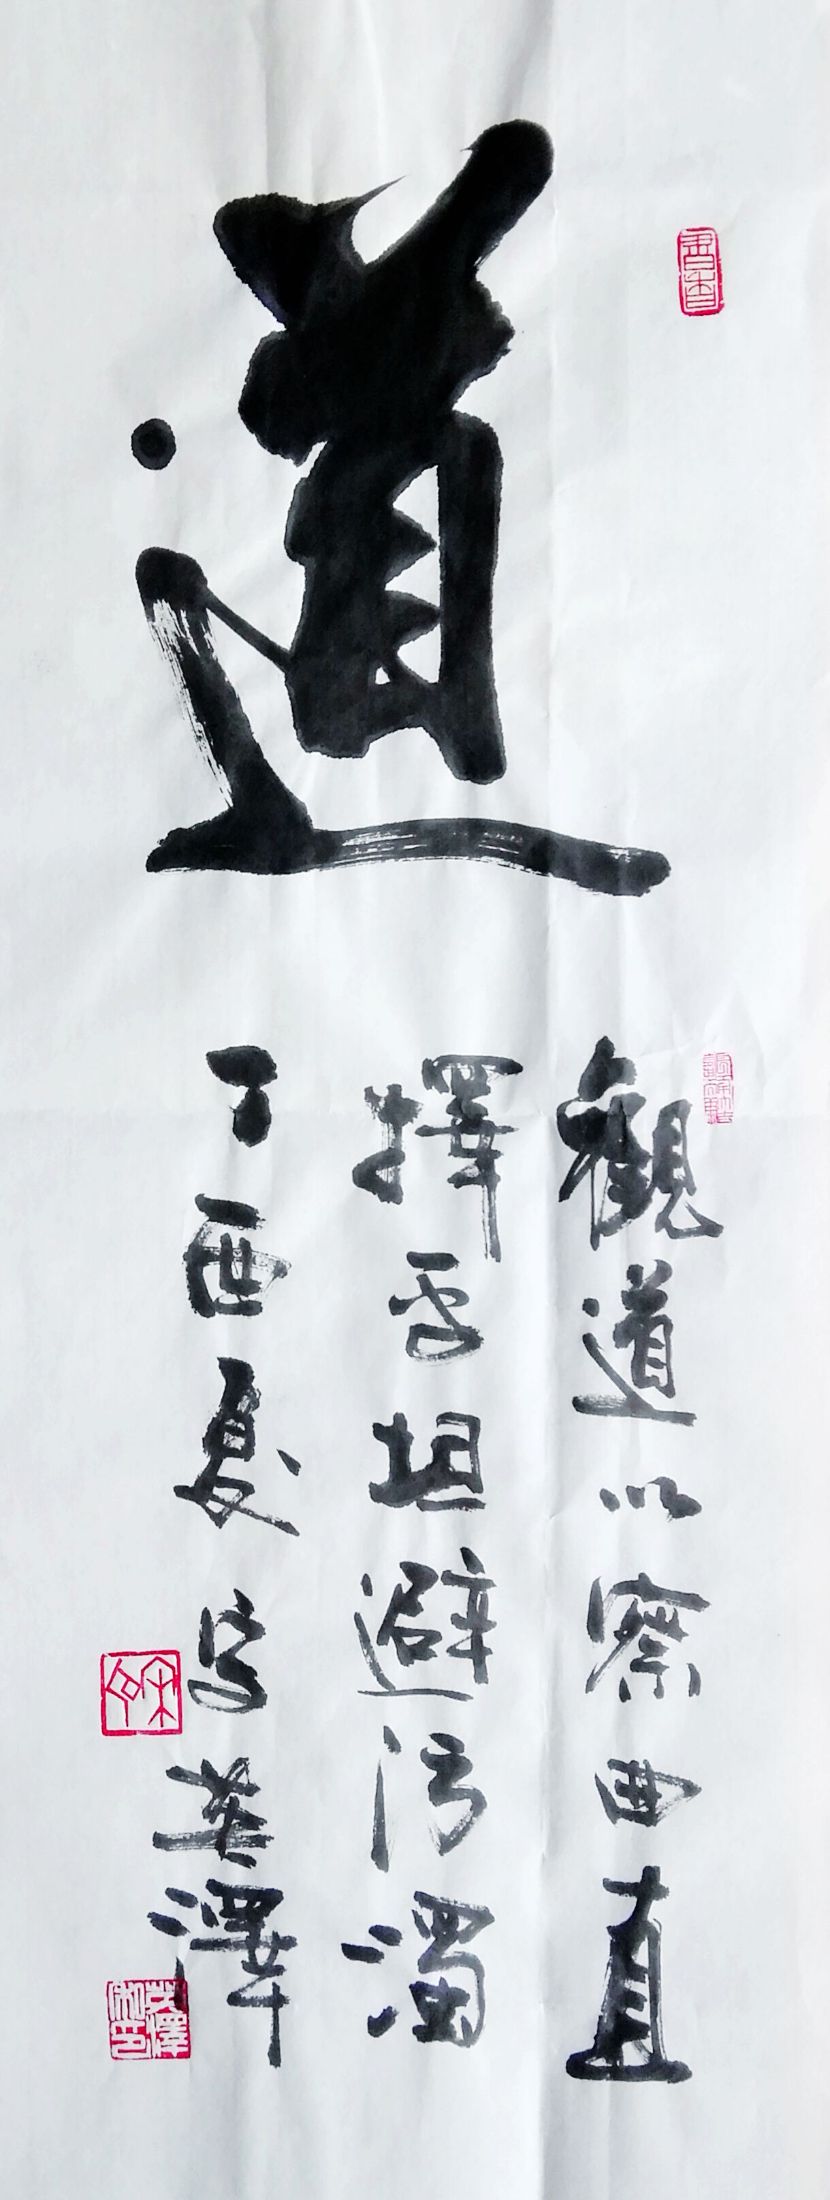 道
觀道以察曲直
擇平坦避污濁
丁酉夏 安英澤